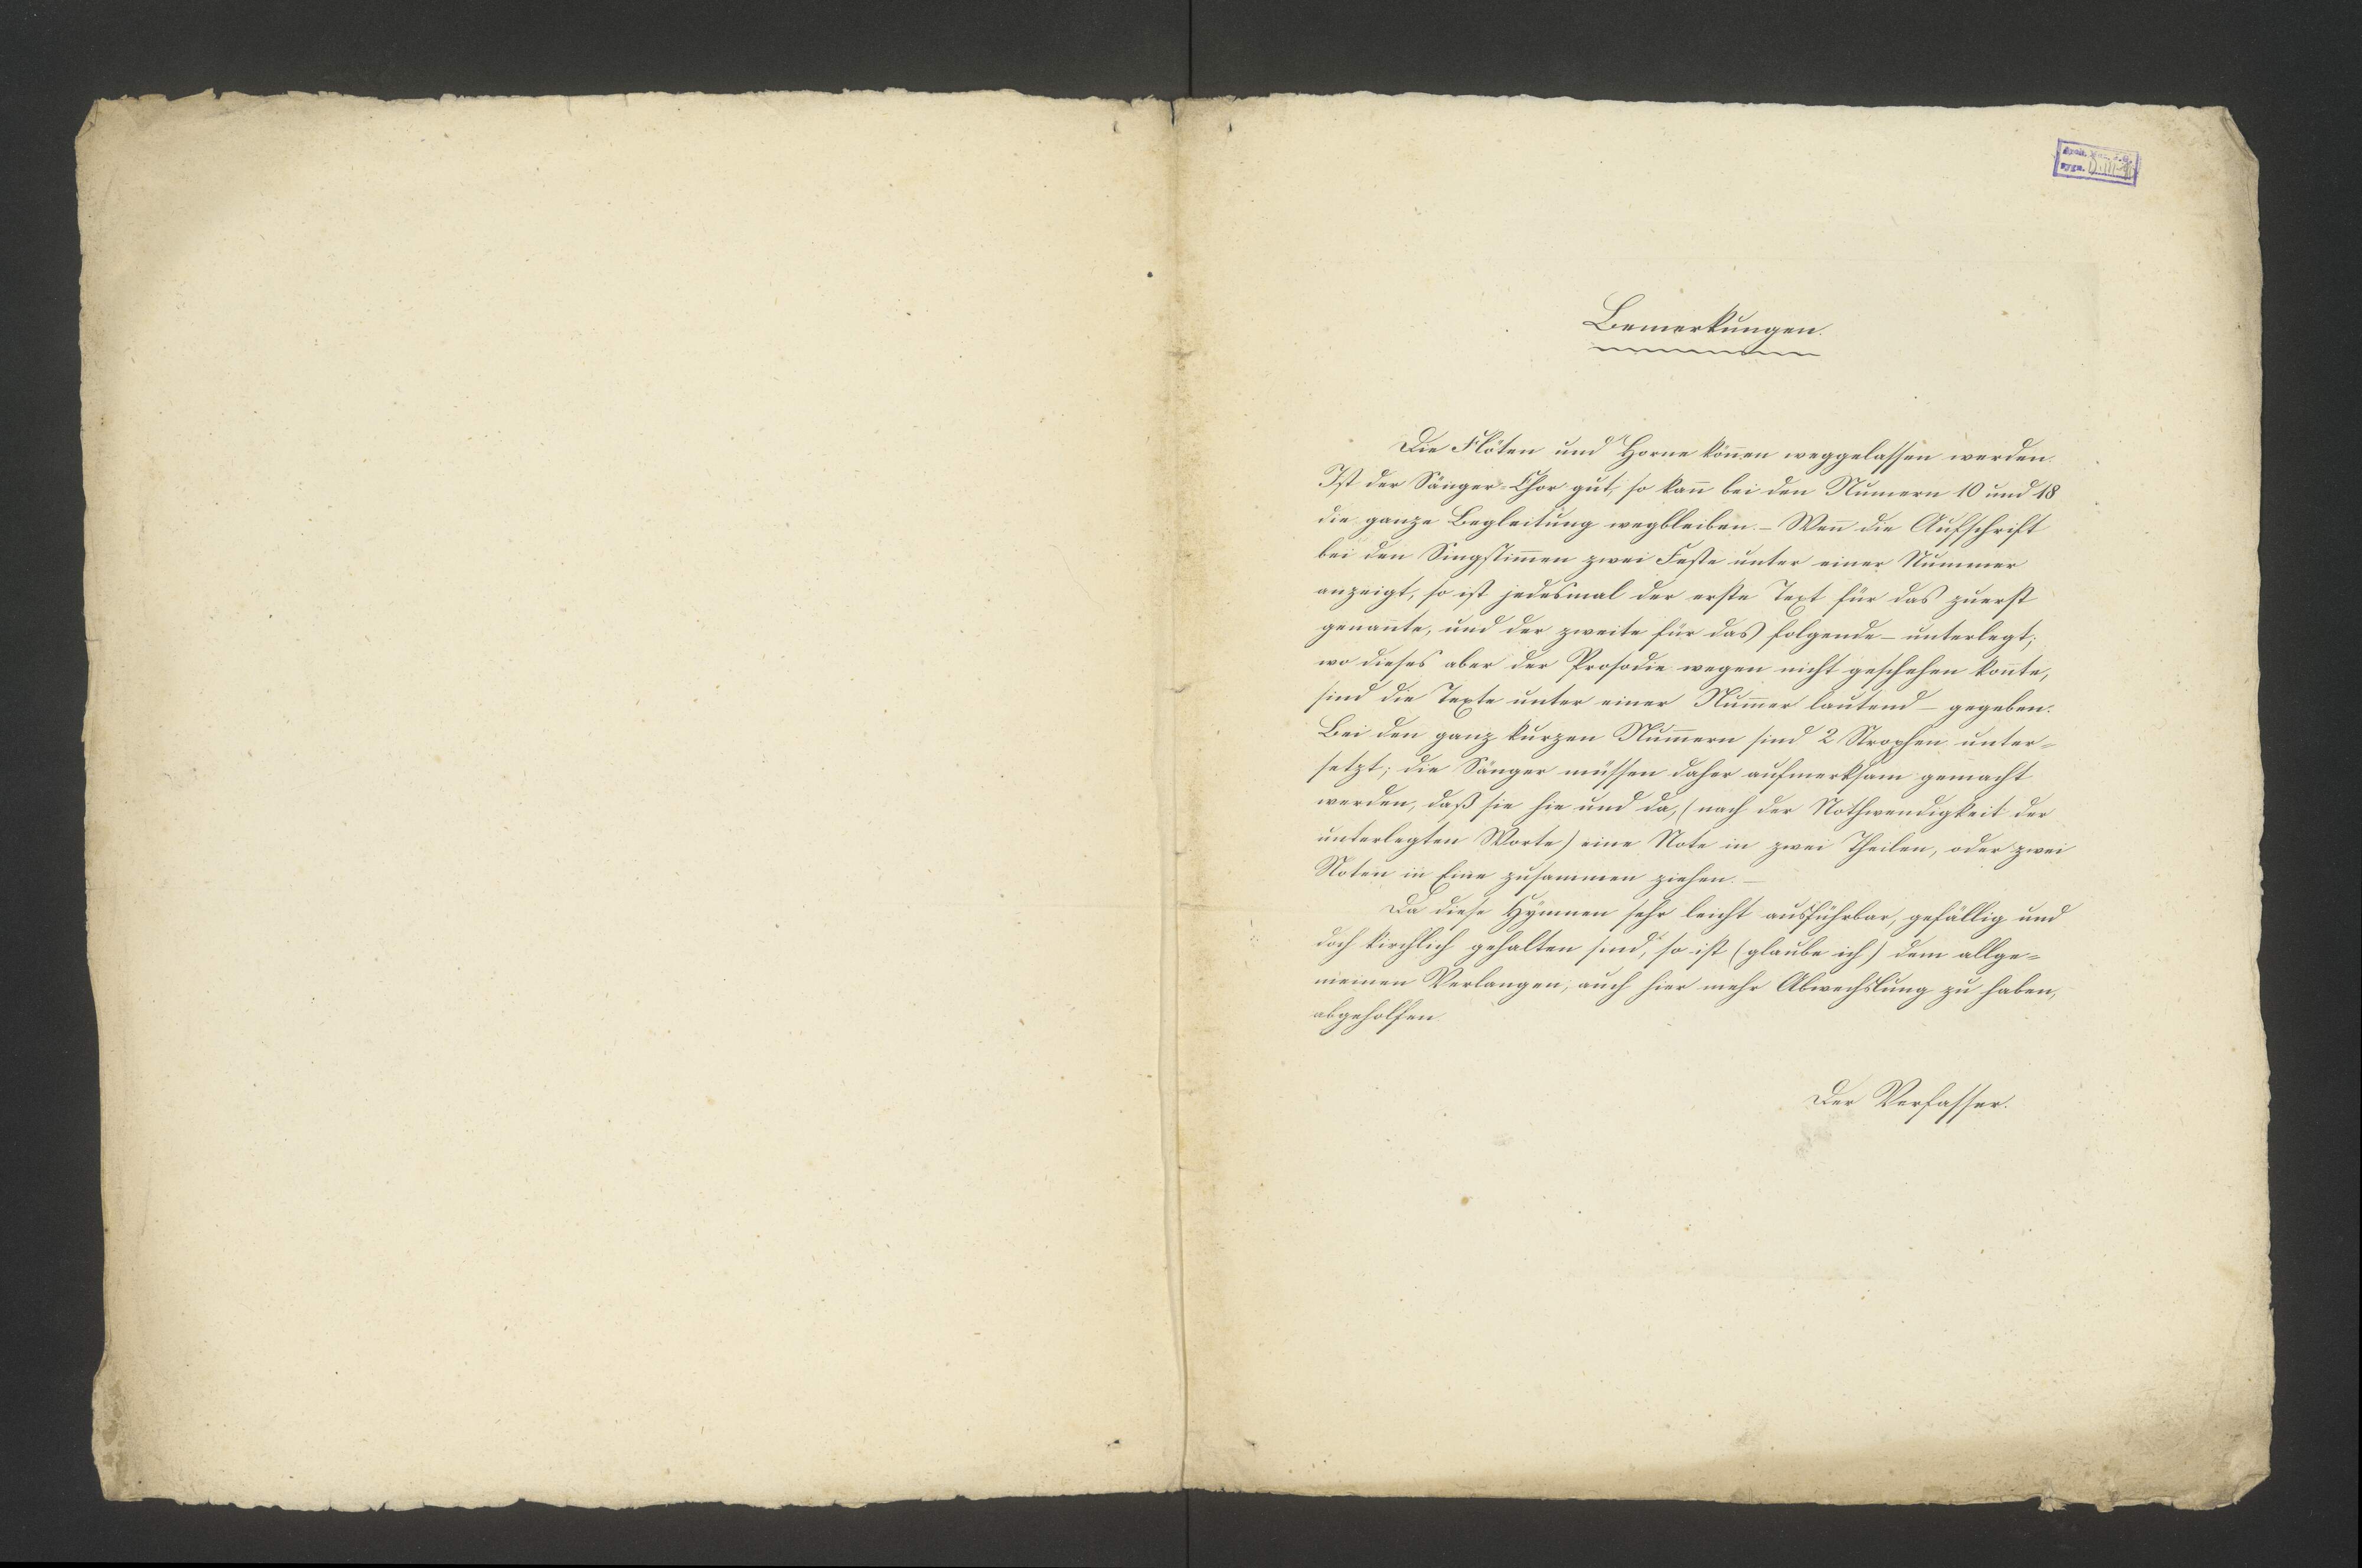 Bemerkungen.
Die Flöten und Horne können weggelassen werden.
Ist der Sänger-Chor gut, so kan̄ bei den Num̄ern 10 und 18
die ganze Begleitung wegbleiben. – Wen̄ die Aufschrift
bei den Singstim̄en zwei Feste unter einer Nummer
anzeigt, so ist jedesmal der erste Text für das zuerst
genan̄te, und der zweite für das folgende – unterlegt;
wo dieses aber der Prosodie wegen nicht geschehen kon̄te,
sind die Texte unter einer Num̄er lautend – gegeben.
Bei den ganz kurzen Num̄ern sind 2 Strophen unter=
setzt; die Sänger müssen daher aufmerksam gemacht
werden, daß sie hie und da, (nach der Nothwendigkeit der
unterlegten Worte) eine Note in zwei Theilen, oder zwei
Noten in Eine zusammen ziehen. –
Da diese Hymnen sehr leicht ausführbar, gefällig und
doch kirchlich gehalten sind, so ist (glaube ich) dem allge=
meinen Verlangen, auch hier mehr Abwechslung zu haben,
abgeholfen.
Der Verfasser.
sygn.